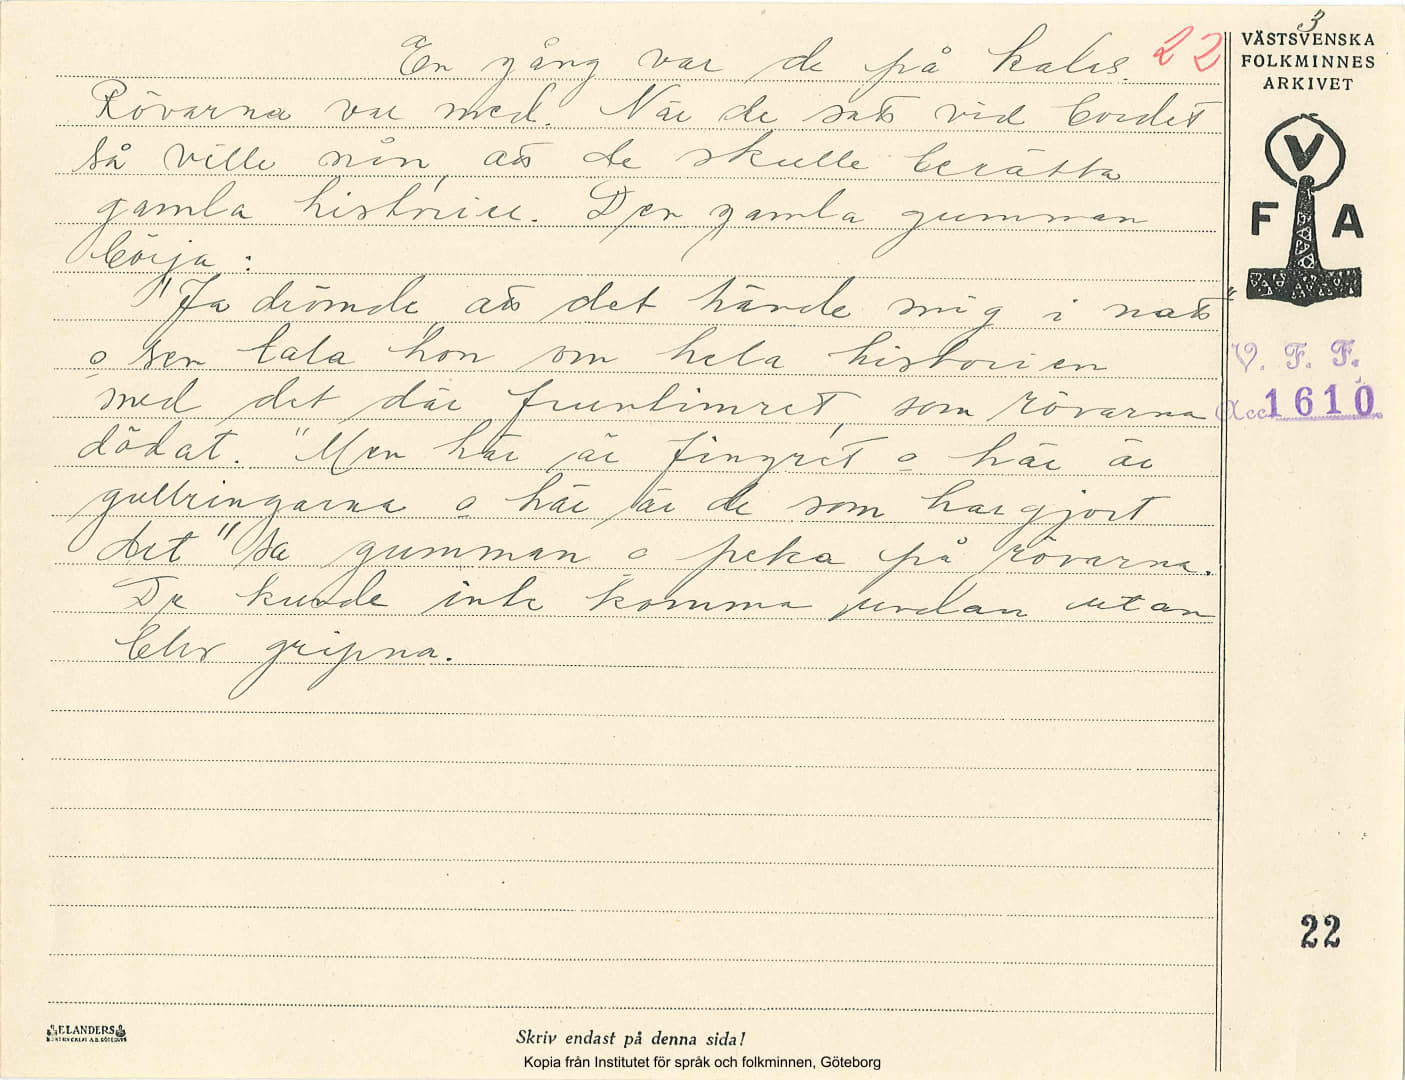 3
VÄSTSVENSKA
FOLKMINNES
ARKIVET
V
F A
V. F. F.
Acc. 1610
22
En gång var de på kalas.
Rövarna var med. När de satt vid bordet
så ville nån, att de skulle berätta
gamla historier. Den gamla gumman
börja:
"Ja drömde, att det hände mig i natt"
o sen tala hon om hela historien
med det där fruntimret, som rövarna
dödat. "Men här är fingret o här är
gullringarna o här är de som har gjort
det" sa gumman o peka på rövarna.
De kunde inte komma undan utan
blev gripna.
22
ELANDERS
BOKTRYCKERI A.B. GÖTEBORG
Skriv endast på denna sida!
Kopia från Institutet för språk och folkminnen, Göteborg